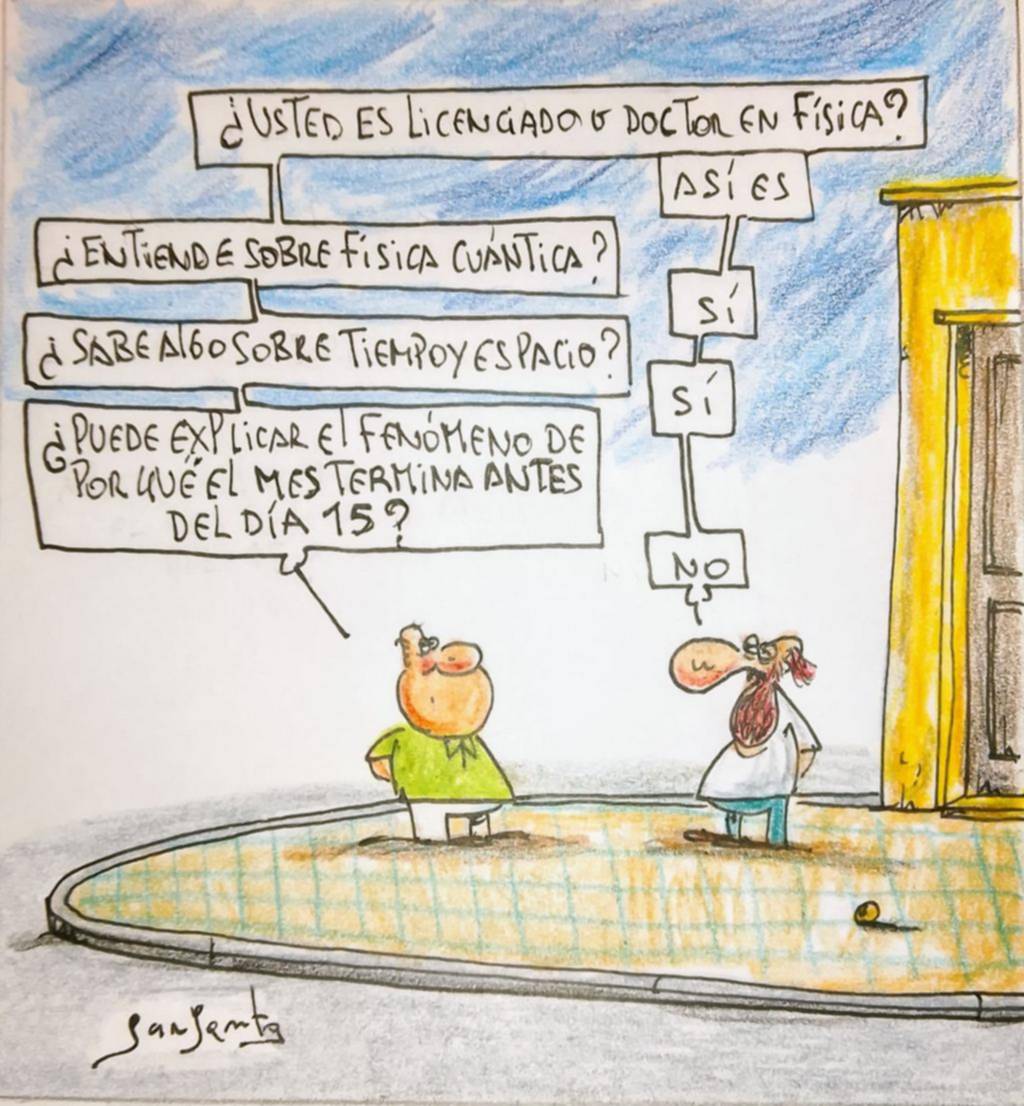 ¿USTED ES LICENCIADO O DOCTOR EN FÍSICA?
ASÍ ES
¿ENTIENDE SOBRE FÍSICA CUÁNTICA?
SÍ
¿SABE ALGO SOBRE TIEMPO Y ESPACIO?
SÍ
¿PUEDE EXPLICAR El FENÓMENO DE
POR QUÉ ÉL MES TERMINA ANTES
DEL DÍA 15?
NO